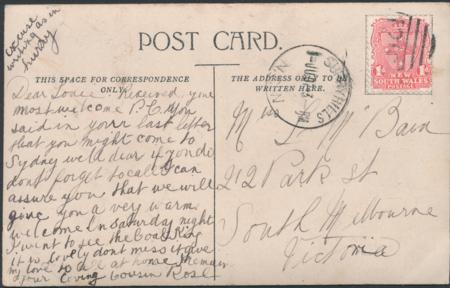 excuse
writing as in
hurry
POST CARD.
THIS SPACE FOR CORRESPONDENCE
ONLY.
THE ADDRESS ONLY TO BE
WRITTEN HERE.
Dear Louie I received your
most welcome P.C. You
said in yorr last letter
that you might come to
Sydney well dear if you do
dont forget to call I can
assure you that we will
give you a very warm
welcome On Saturday night
I went to see the Coal King
it is lovely dont miss it give
my love to all at home I remain
your loving Cousin Rose
SURRY HILLS
N.S.W
1d
NEW
SOUTH WALES
POSTAGE
1d
Miss L McBain
212 Park St
South Melbourne
Victoria